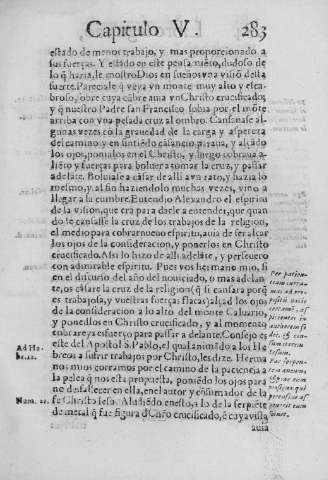 Capitulo V. 283
estado de menos trabajo, y mas proporcionado a
sus fuerças. Y estãdo en este pensamiẽto, dudoso de
lo q̃ haria, le mostro Dios en sueños vna visiõ desta
suerte. Pareciale q̃ veya vn monte muy alto y escabroso,
sobre cuya cũbre auia vn Christo crucificado,
y q̃ nuestro Padre san Francisco subia por el mõte
arriba con vna pesada cruz al ombro. Cansauase algunas
vezes cõ la grauedad de la carga y aspereza
del camino y en sintiẽdo cãsancio paraua, y alçãdo
los ojos, ponialos en el Christo, y luego cobraua aliẽto
y fuerças para boluer a tomar la cruz, y passar
adelãte. Boluiase a cãsar de alli a vn rato, y hazia lo
mesmo, y assi haziendolo muchas vezes, vino a
llegar a la cumbre. Entendio Alexandro el espiritu
de la vision, que era para darle a entender, que quando
le cansasse la cruz de los trabajos de la religion,
el medio para cobrar nueuo espiritu, auia de ser alçar
los ojos de la consideracion, y ponerlos en Christo
crucificado. Assi lo hizo de alli adelãte, y perseuero
con admirable espiritu. Pues vos hermano mio, si
en el discurso del año del nouiciado, o mas adelante,
os cãsare la cruz de la religiõ (q̃ si cansara porq̃
es trabajosa, y vuestras fuerças flacas) alçad los ojos
de la consideracion a lo alto del monte Caluario,
y ponedlos en Christo crucificado, y al momento
cobrareys esfuerço para passar adelante. Consejo es
este del Apostol S. Pablo, el qual animãdo a los Hebreos
a sufrir trabajos por Christo, les dize. Hermanos
mios corramos por el camino de la paciencia a
la pelea q̃ nos esta propuesta, poniẽdo los ojos para
no desfallecer en ella, en el autor y cõsumador de la
fe Christo Iesu. Aludiẽdo en esto, a lo de la serpiẽte
de metal q̃ fue figura d̃ Christo crucificado, ẽ cuya vista
auia
Ad He
br. 12.
Num. 21.
Per patien
tiam curra
mus ad pro
positũ nobis
certamẽ, as
picientes in